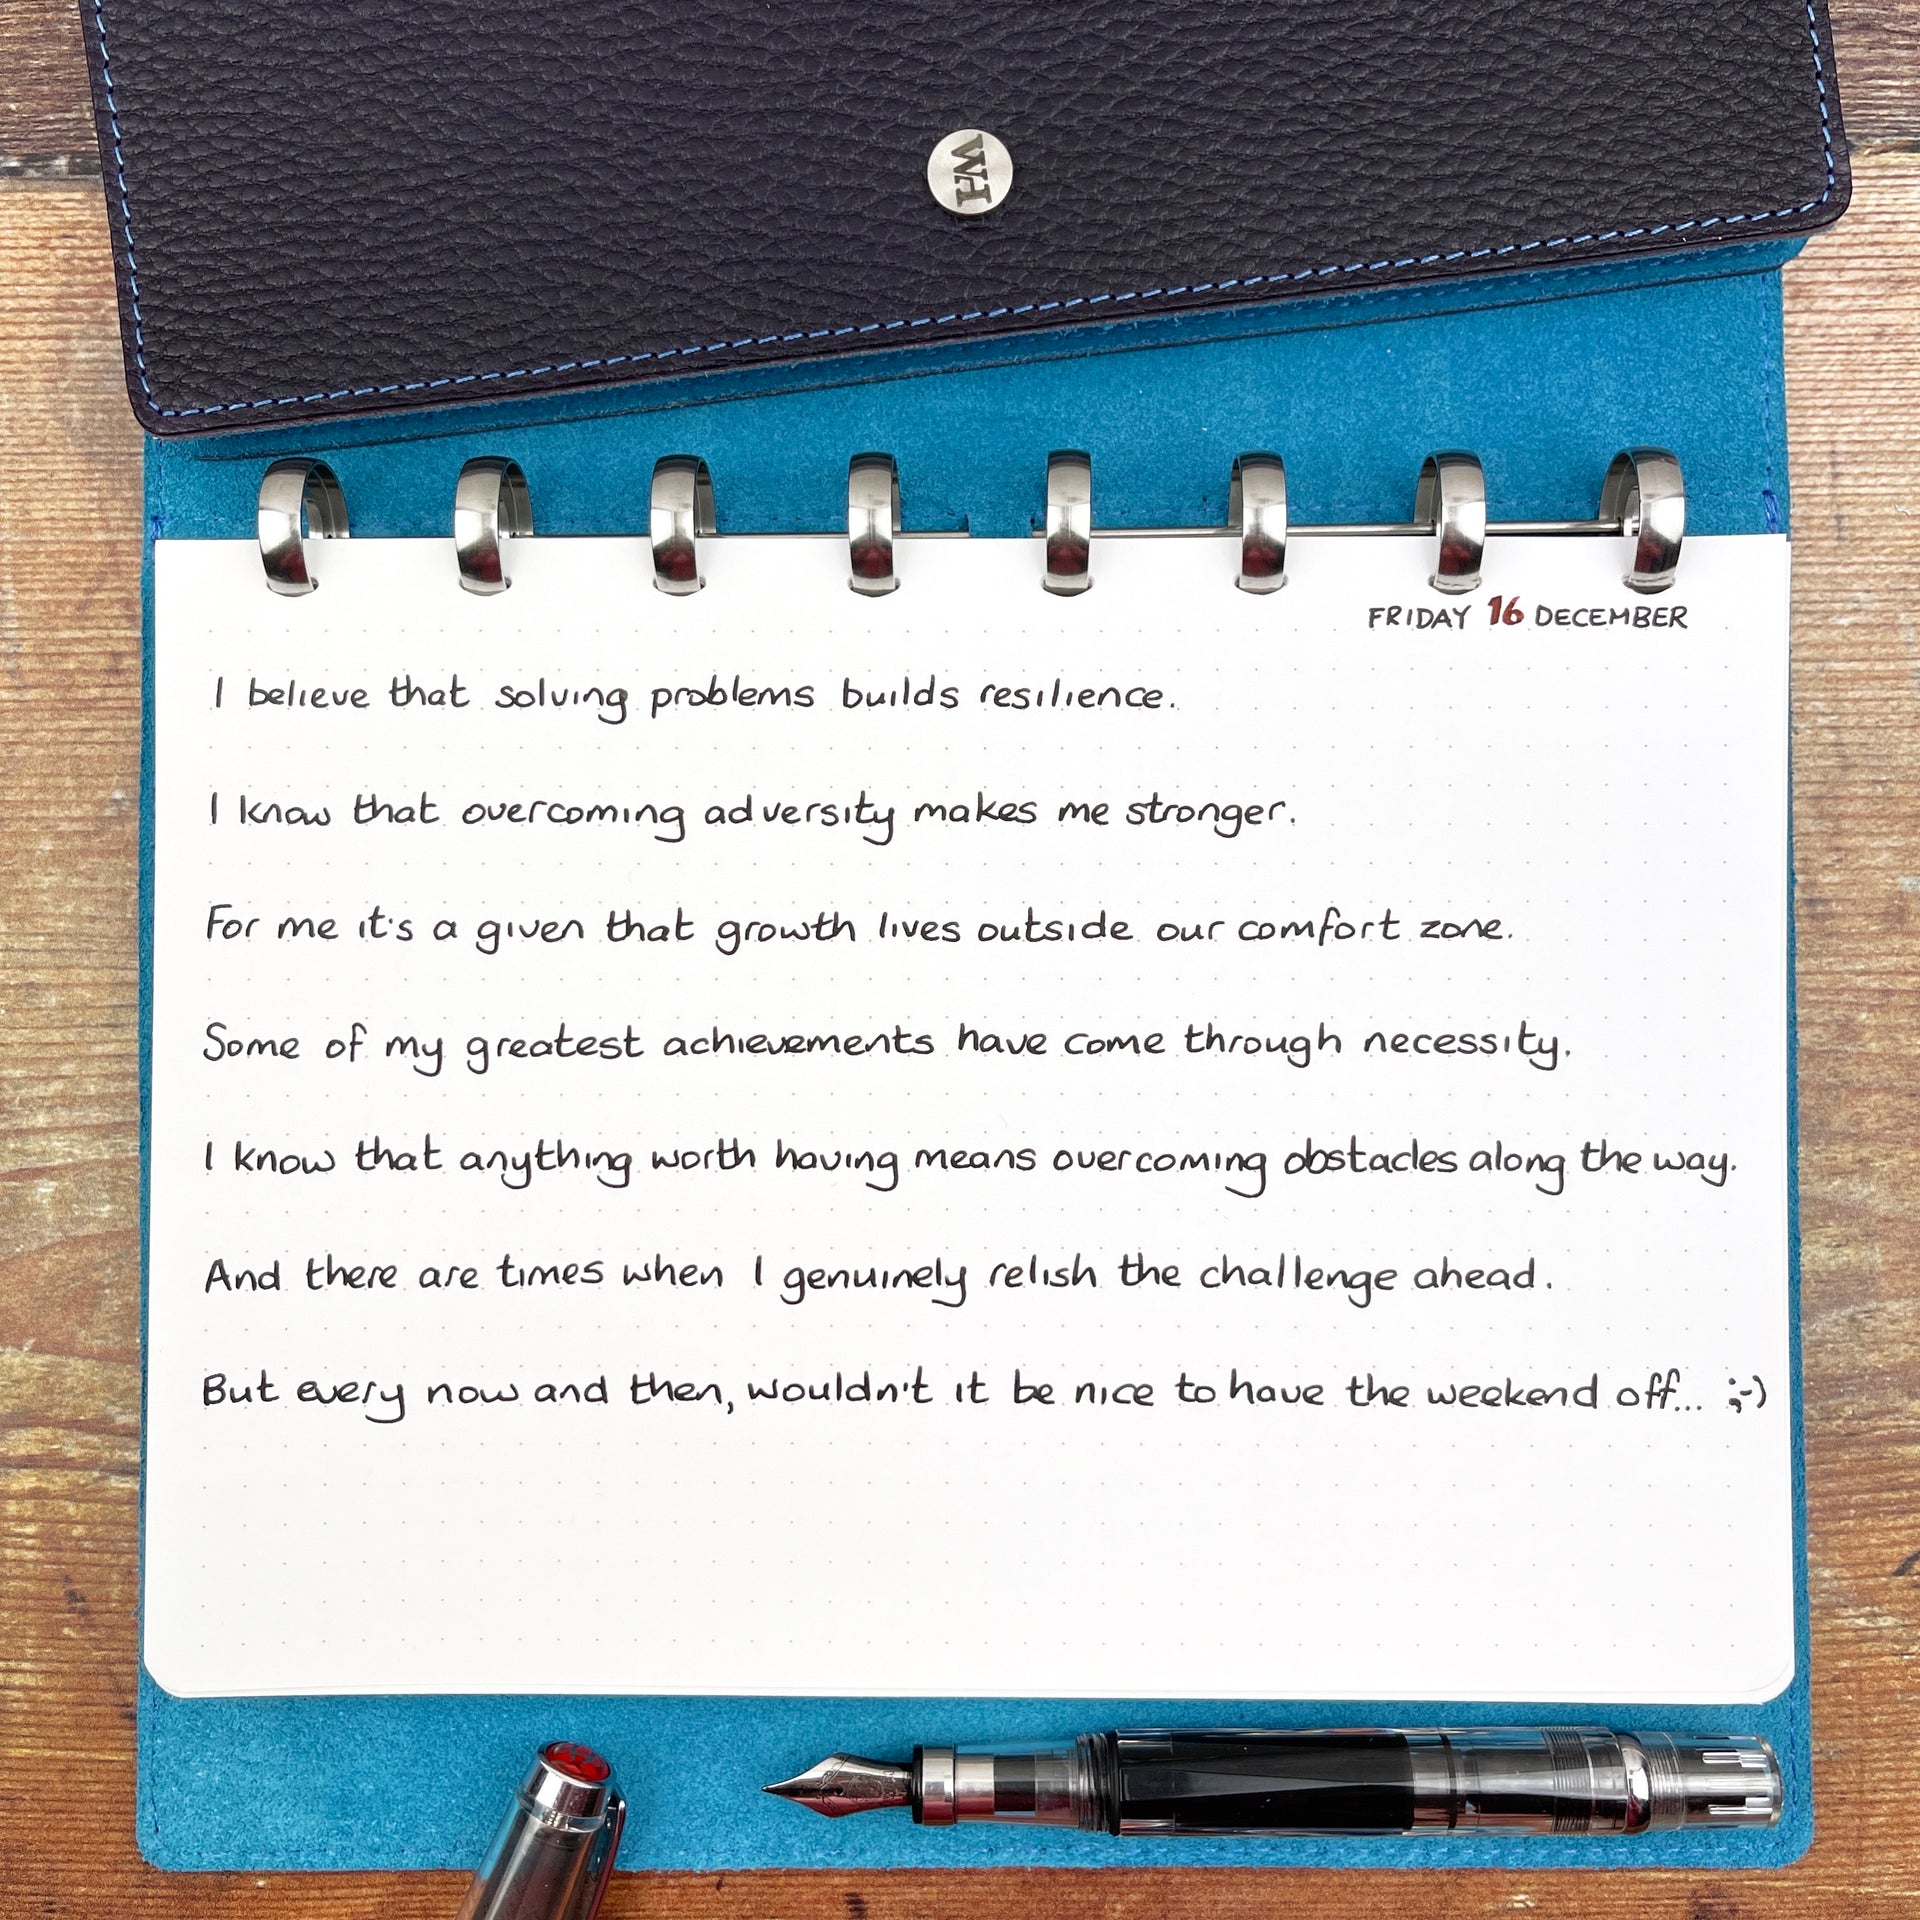 WH
FRIDAY 16 DECEMBER
I believe that solving problems builds resilience.
I know that overcoming adversity makes me stronger.
For me it's a given that growth lives outside our comfort zone.
Some of my greatest achievements have come through necessity.
I know that anything worth having means overcoming obstacles along the way.
And there are times when I genuinely relish the challenge ahead.
But every now and then, wouldn't it be nice to have the weekend off... ;-)